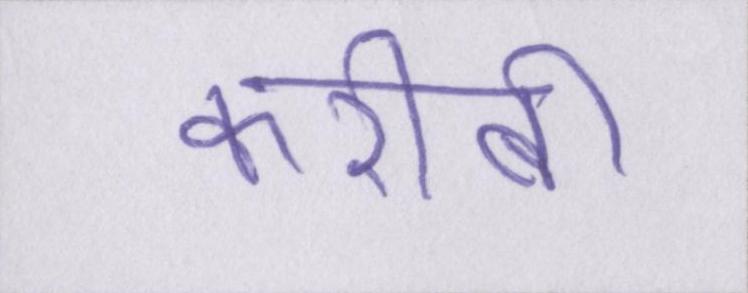 करीबी